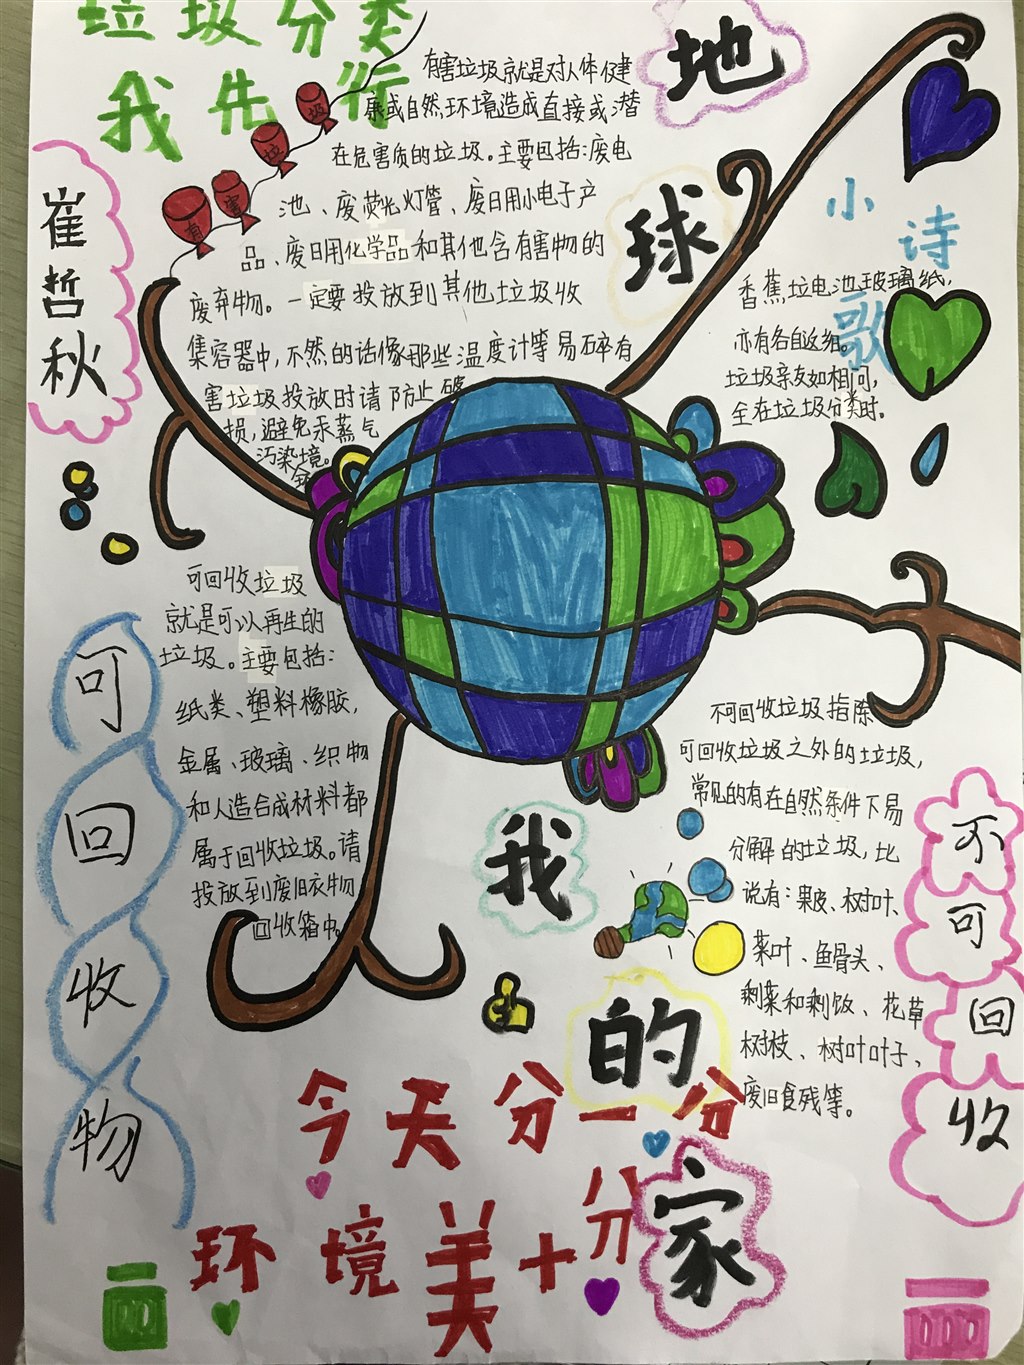 垃圾分类
我先行
有害垃圾
有害垃圾就是对人体健
康或自然环境造成直接或潜
在危害质的垃圾。主要包括:废电
池、废荧光灯管、废日用小电子产
品、废日用化学品和其他含有害物的
废弃物。一定要投放到其他垃圾收
集容器中,不然的话像那些温度计等易碎有
害垃圾投放时请防止破
损,避免汞蒸气
污染境。
崔哲秋
地
球
我
的
家
小诗歌
香蕉垃电池玻璃纸,
亦有各自
垃圾亲友如相问,
全在垃圾分类时。
可回收物
可回收垃圾
就是可以再生的
垃圾。主要包括:
纸类、塑料橡胶,
金属、玻璃、织物
和人造合成材料都
属于回收垃圾。请
投放到废旧衣物
回收箱中。
不可回收
不可回收垃圾指除
可回收垃圾之外的垃圾,
常见的有在自然条件下易
分解的垃圾,比
说有:果皮、树叶、
菜叶、鱼骨头、
剩菜和剩饭、花草
树枝、树叶叶子、
废旧食残等。
今天分一分
环境美十分